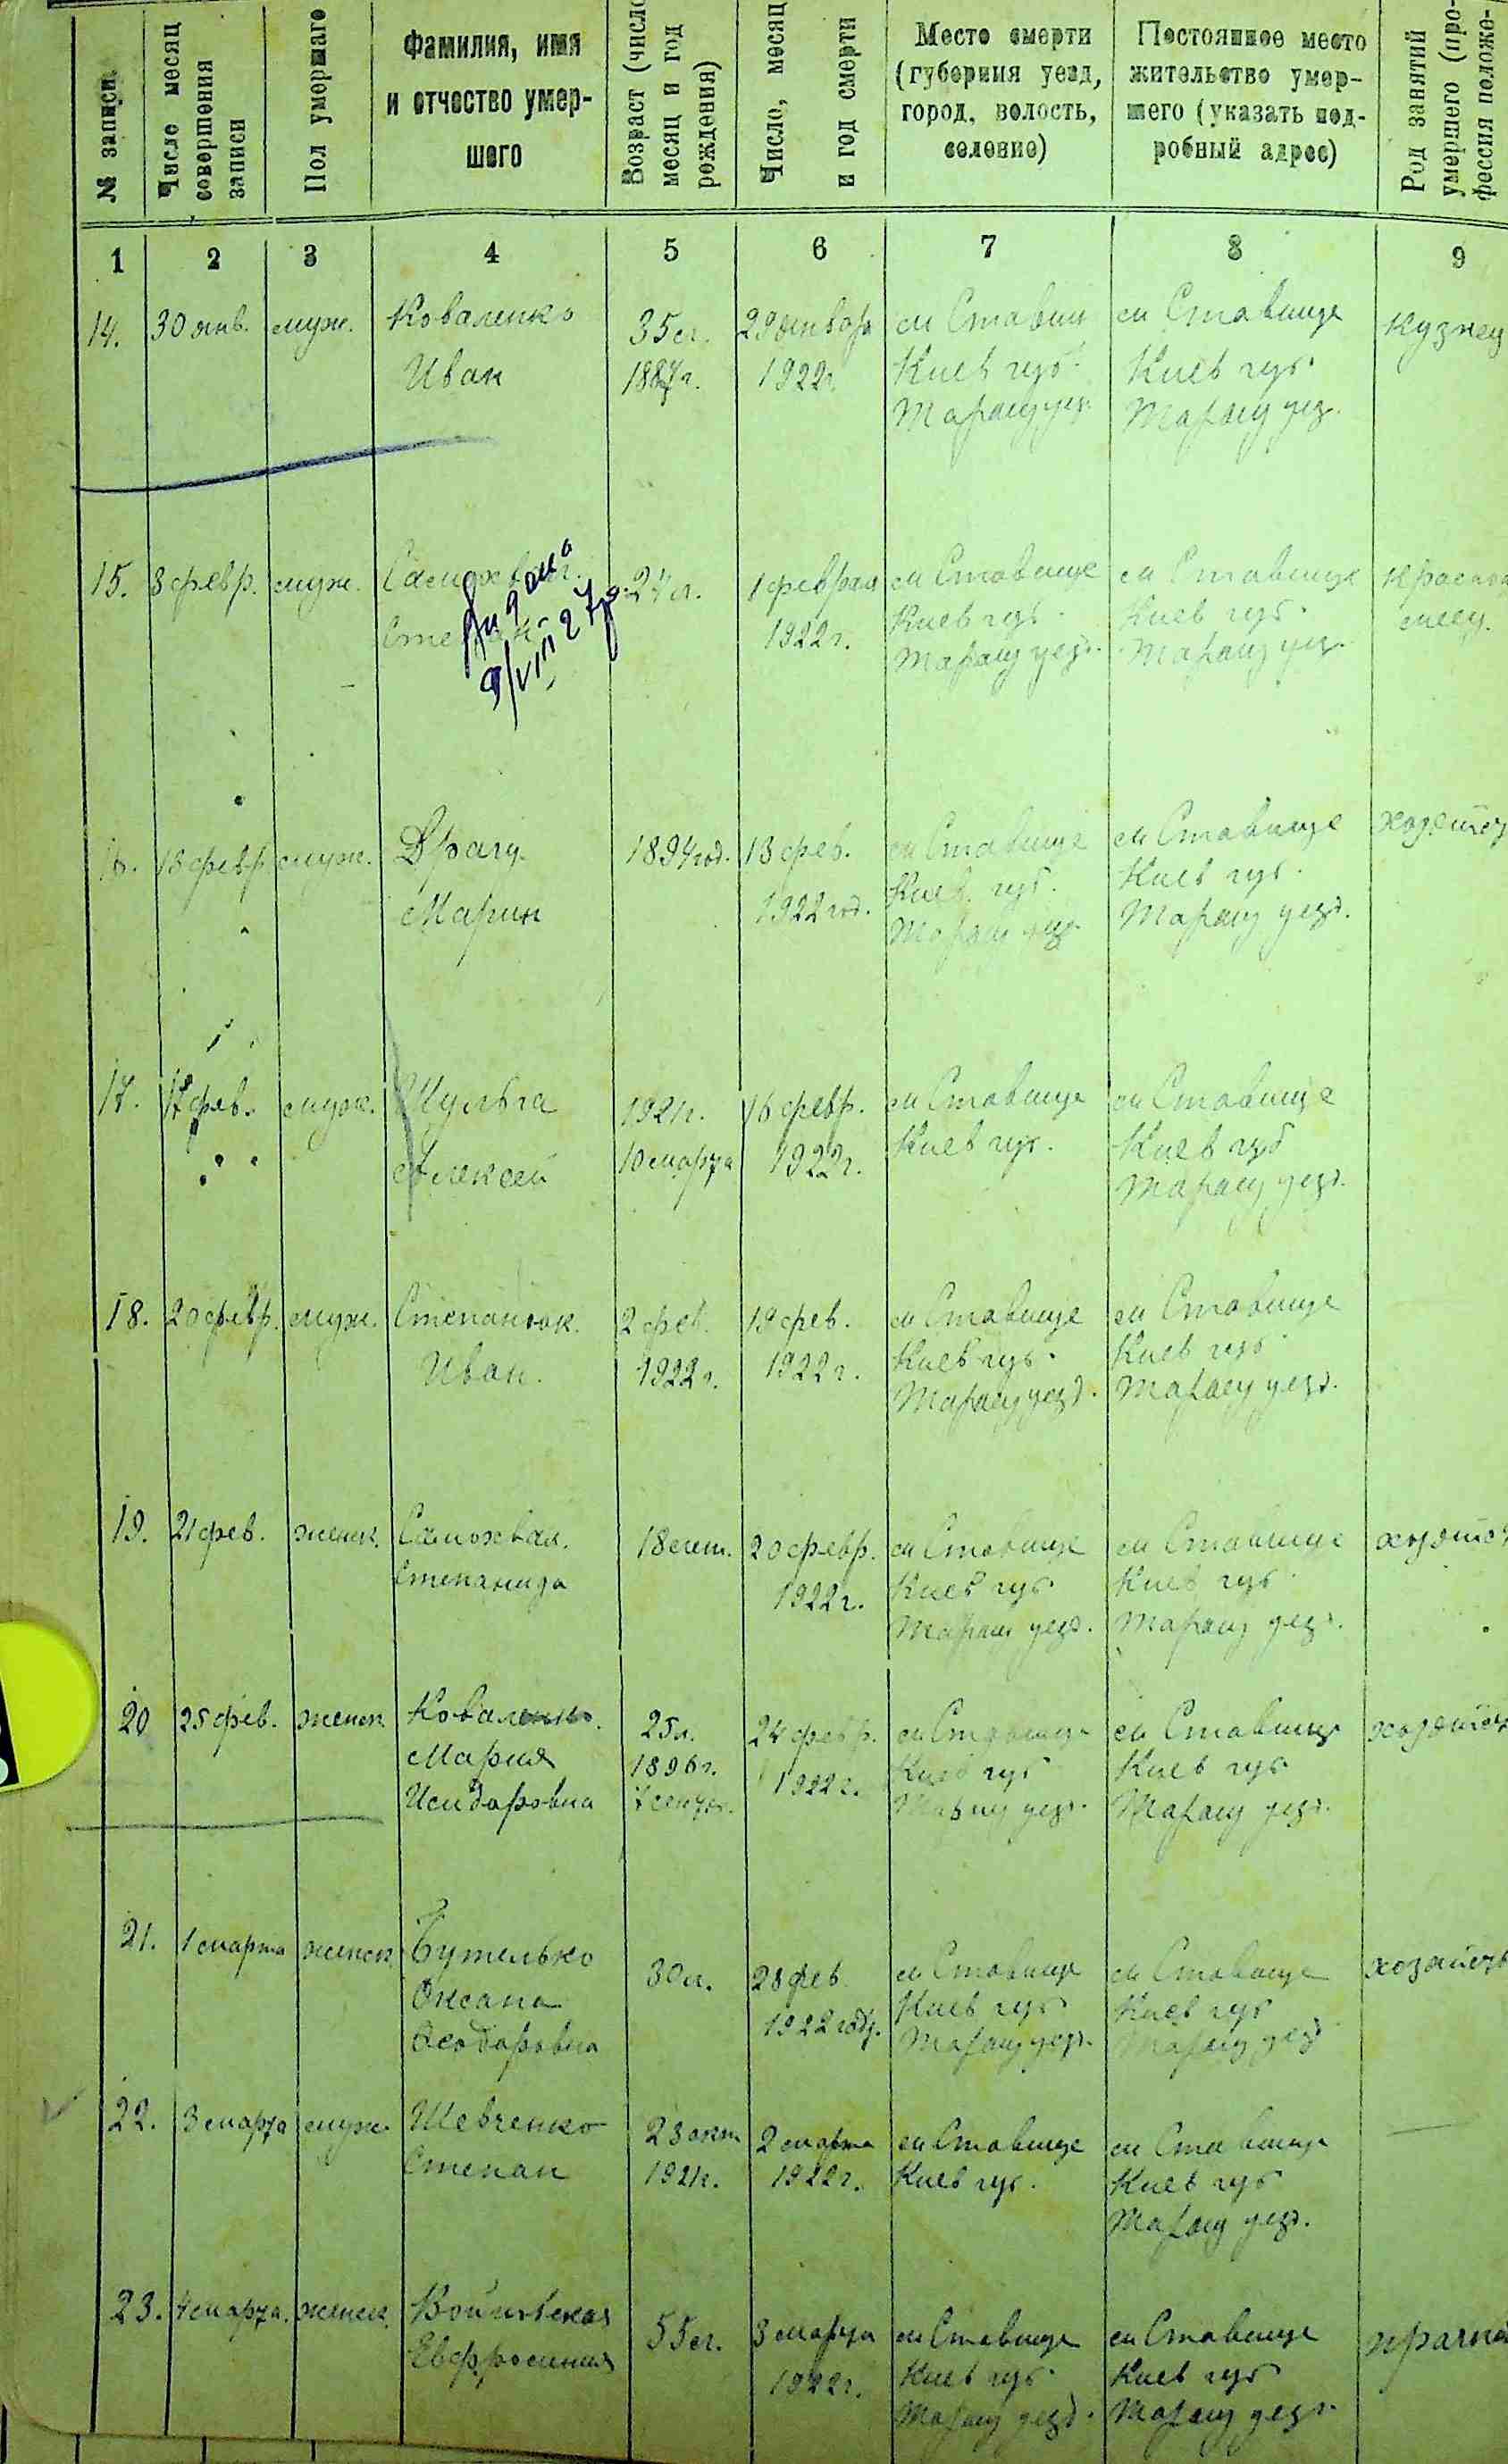 № записи.
Число месяц
совершения
записи
Пол умершаго
Фамилия, имя
и отчество умер-
шого
Возраст (число
месяц и год
рождения)
Число, месяц
и год смерти
Место смерти
(губерния уезд,
город, волость,
селение)
Постоянное место
жительство умер-
шего (указать под-
робный адрес)
Род занятий
умершего (про-
фессия положе-
1 2 3 4 5 6 7 8 9
14. 30 янв. муж. Коваленко 35 л. 29 января м Ставищ м Ставище кузнец
Иван 1887 г. 1922 г. Киев губ. Киев губ.
Таращ уез. Таращ уез.
15. 3 февр. муж. 24 л. 1 февраля м Ставище м Ставище
1922 г. Киев губ. Киев губ.
Таращ уезд. Таращ уез.
9/VIII 27
16. 13 февр муж. 1894 год. 13 фев. м Ставище м Ставище
Марин 1922 год. Киев. губ. Киев губ.
Таращ уез. Таращ уезд.
17. фев. муж. Шульга 1921 г. 16 февр. м Ставище м Ставище
Алексей 10 марта 1922 г. Киев губ. Киев губ
Таращ уезд.
18. 20 февр. муж. Степанюк. 2 фев. 19 фев. м Ставище м Ставище
Иван. 1922 г. 1922 г. Киев губ. Киев губ.
Таращ уезд. Таращ уезд.
19. 21 фев. женск. Самохвал. 18 лет. 20 февр. м Ставище м Ставище
Степанида 1922 г. Киев губ. Киев губ.
Таращ уезд. Таращ уезд.
20 25 фев. женск Коваленко. 25 л. 24 февр. м Ставище м Ставище
Мария 1896 г. 1922 г. Киев губ Киев губ
Исидоровна Таращ уезд. Таращ уезд.
21. 1 марта женск Бутелько 30 л. 28 фев. м Ставище м Ставище
Оксана 1922 году. Киев губ Киев губ
Феодоровна Таращ уезд. Таращ уезд
22. 3 марта муж. Шевченко 23 окт 2 марта м Ставище м Ставище —
Степан 1921 г. 1922 г. Киев губ. Киев губ
Таращ уезд.
23. 4 марта. женск. 55 л. 3 марта м Ставище м Ставище
Евфросиния 1922 г. Киев губ. Киев губ
Таращ уезд. Таращ уезд.